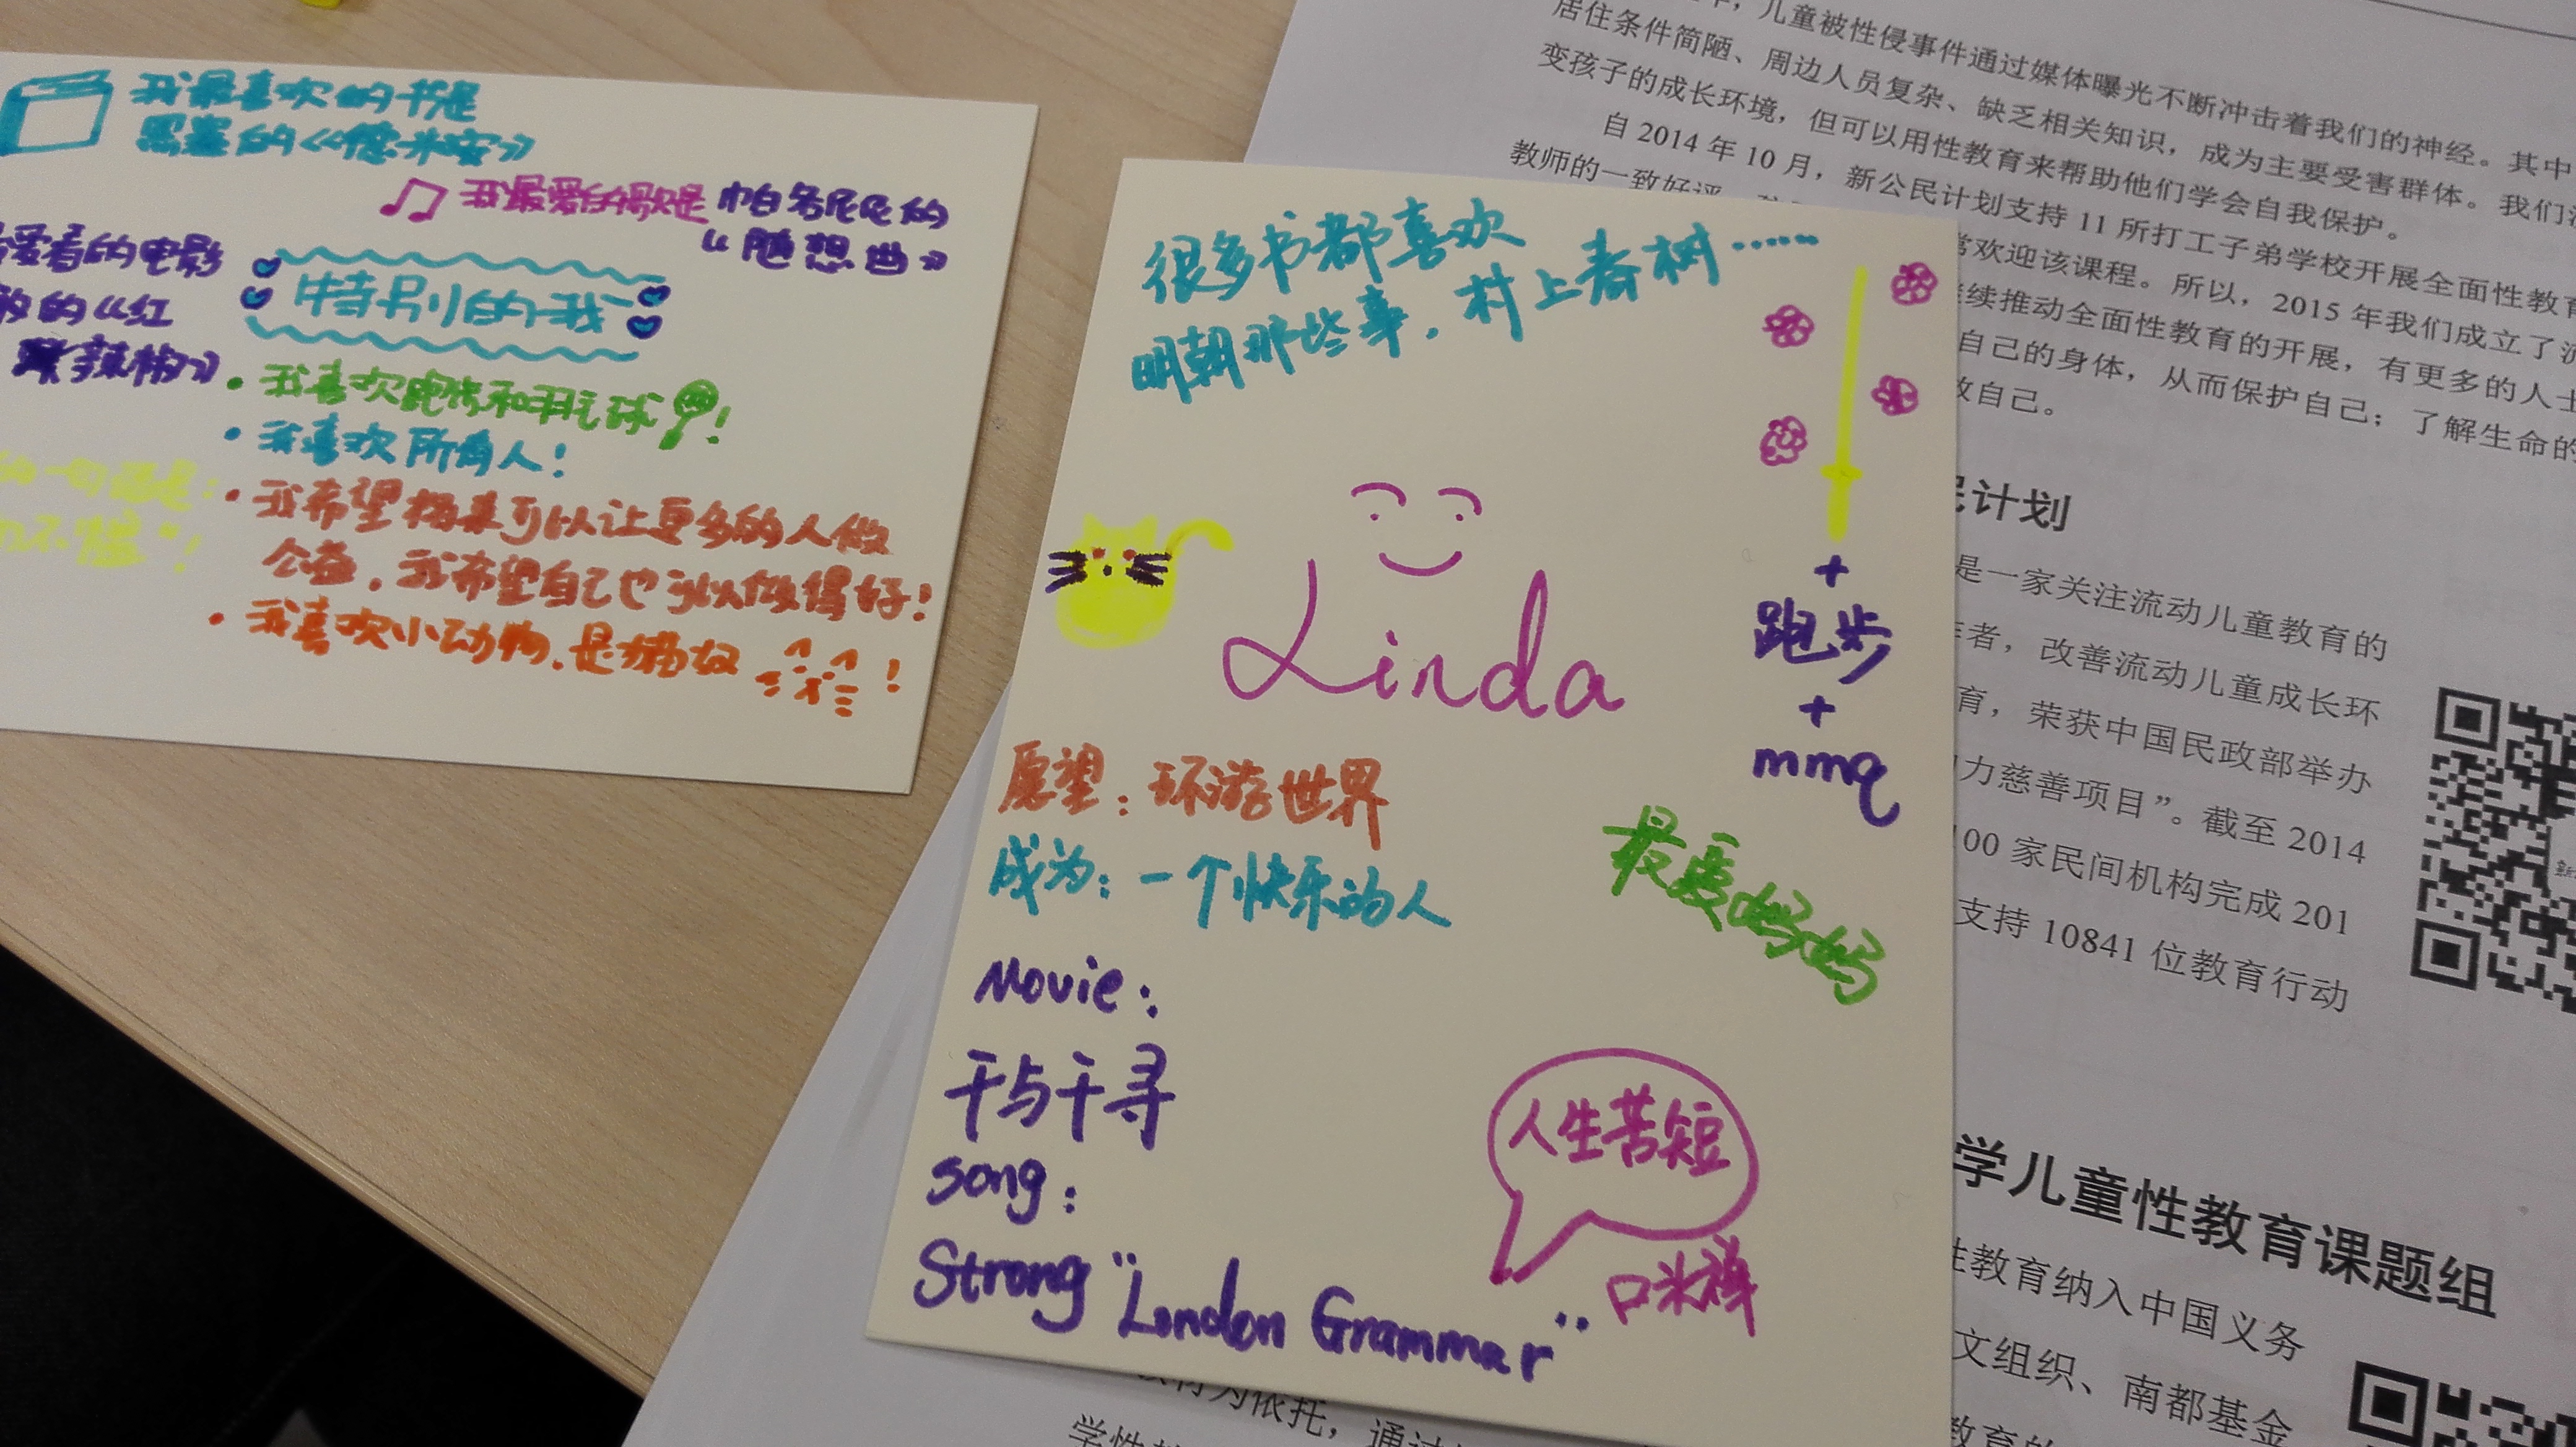 我最喜欢的书是
黑塞的《德米安》
我最爱的歌是帕格尼尼的
“随想曲”
爱看的电影
的《红
辣椒》
特别的我
·我喜欢跑步和羽毛球!
·我喜欢所有人!
·我希望将来可以让更多的人做
公益,我希望自己也可以做得好!
·我喜欢小动物,是猫奴!
的一句话是:
不
很多书都喜欢
明朝那些事,村上春树……
+
跑步
+
mmq
Linda
愿望:环游世界
成为:一个快乐的人
最爱妈妈
Movie:
千与千寻
song:
Strong "London Grammar"
人生苦短
口头禅
,儿童被性侵事件通过媒体曝光不断冲击着我们的神经。其中
居住条件简陋、周边人员复杂、缺乏相关知识,成为主要受害群体。我们
变孩子的成长环境,但可以用性教育来帮助他们学会自我保护。
自 2014 年 10 月,新公民计划支持 11 所打工子弟学校开展全面性教育
教师的一致好评
常欢迎该课程。所以,2015 年我们成立了
续推动全面性教育的开展,有更多的人士
自己的身体,从而保护自己;了解生命的
自己。
民计划
是一家关注流动儿童教育的
者,改善流动儿童成长环
育,荣获中国民政部举办
力慈善项目”。截至 2014
00 家民间机构完成 201
支持 10841 位教育行动
学儿童性教育课题组
性教育纳入中国义务
文组织、南都基金
教育的
为依托,通过
学性